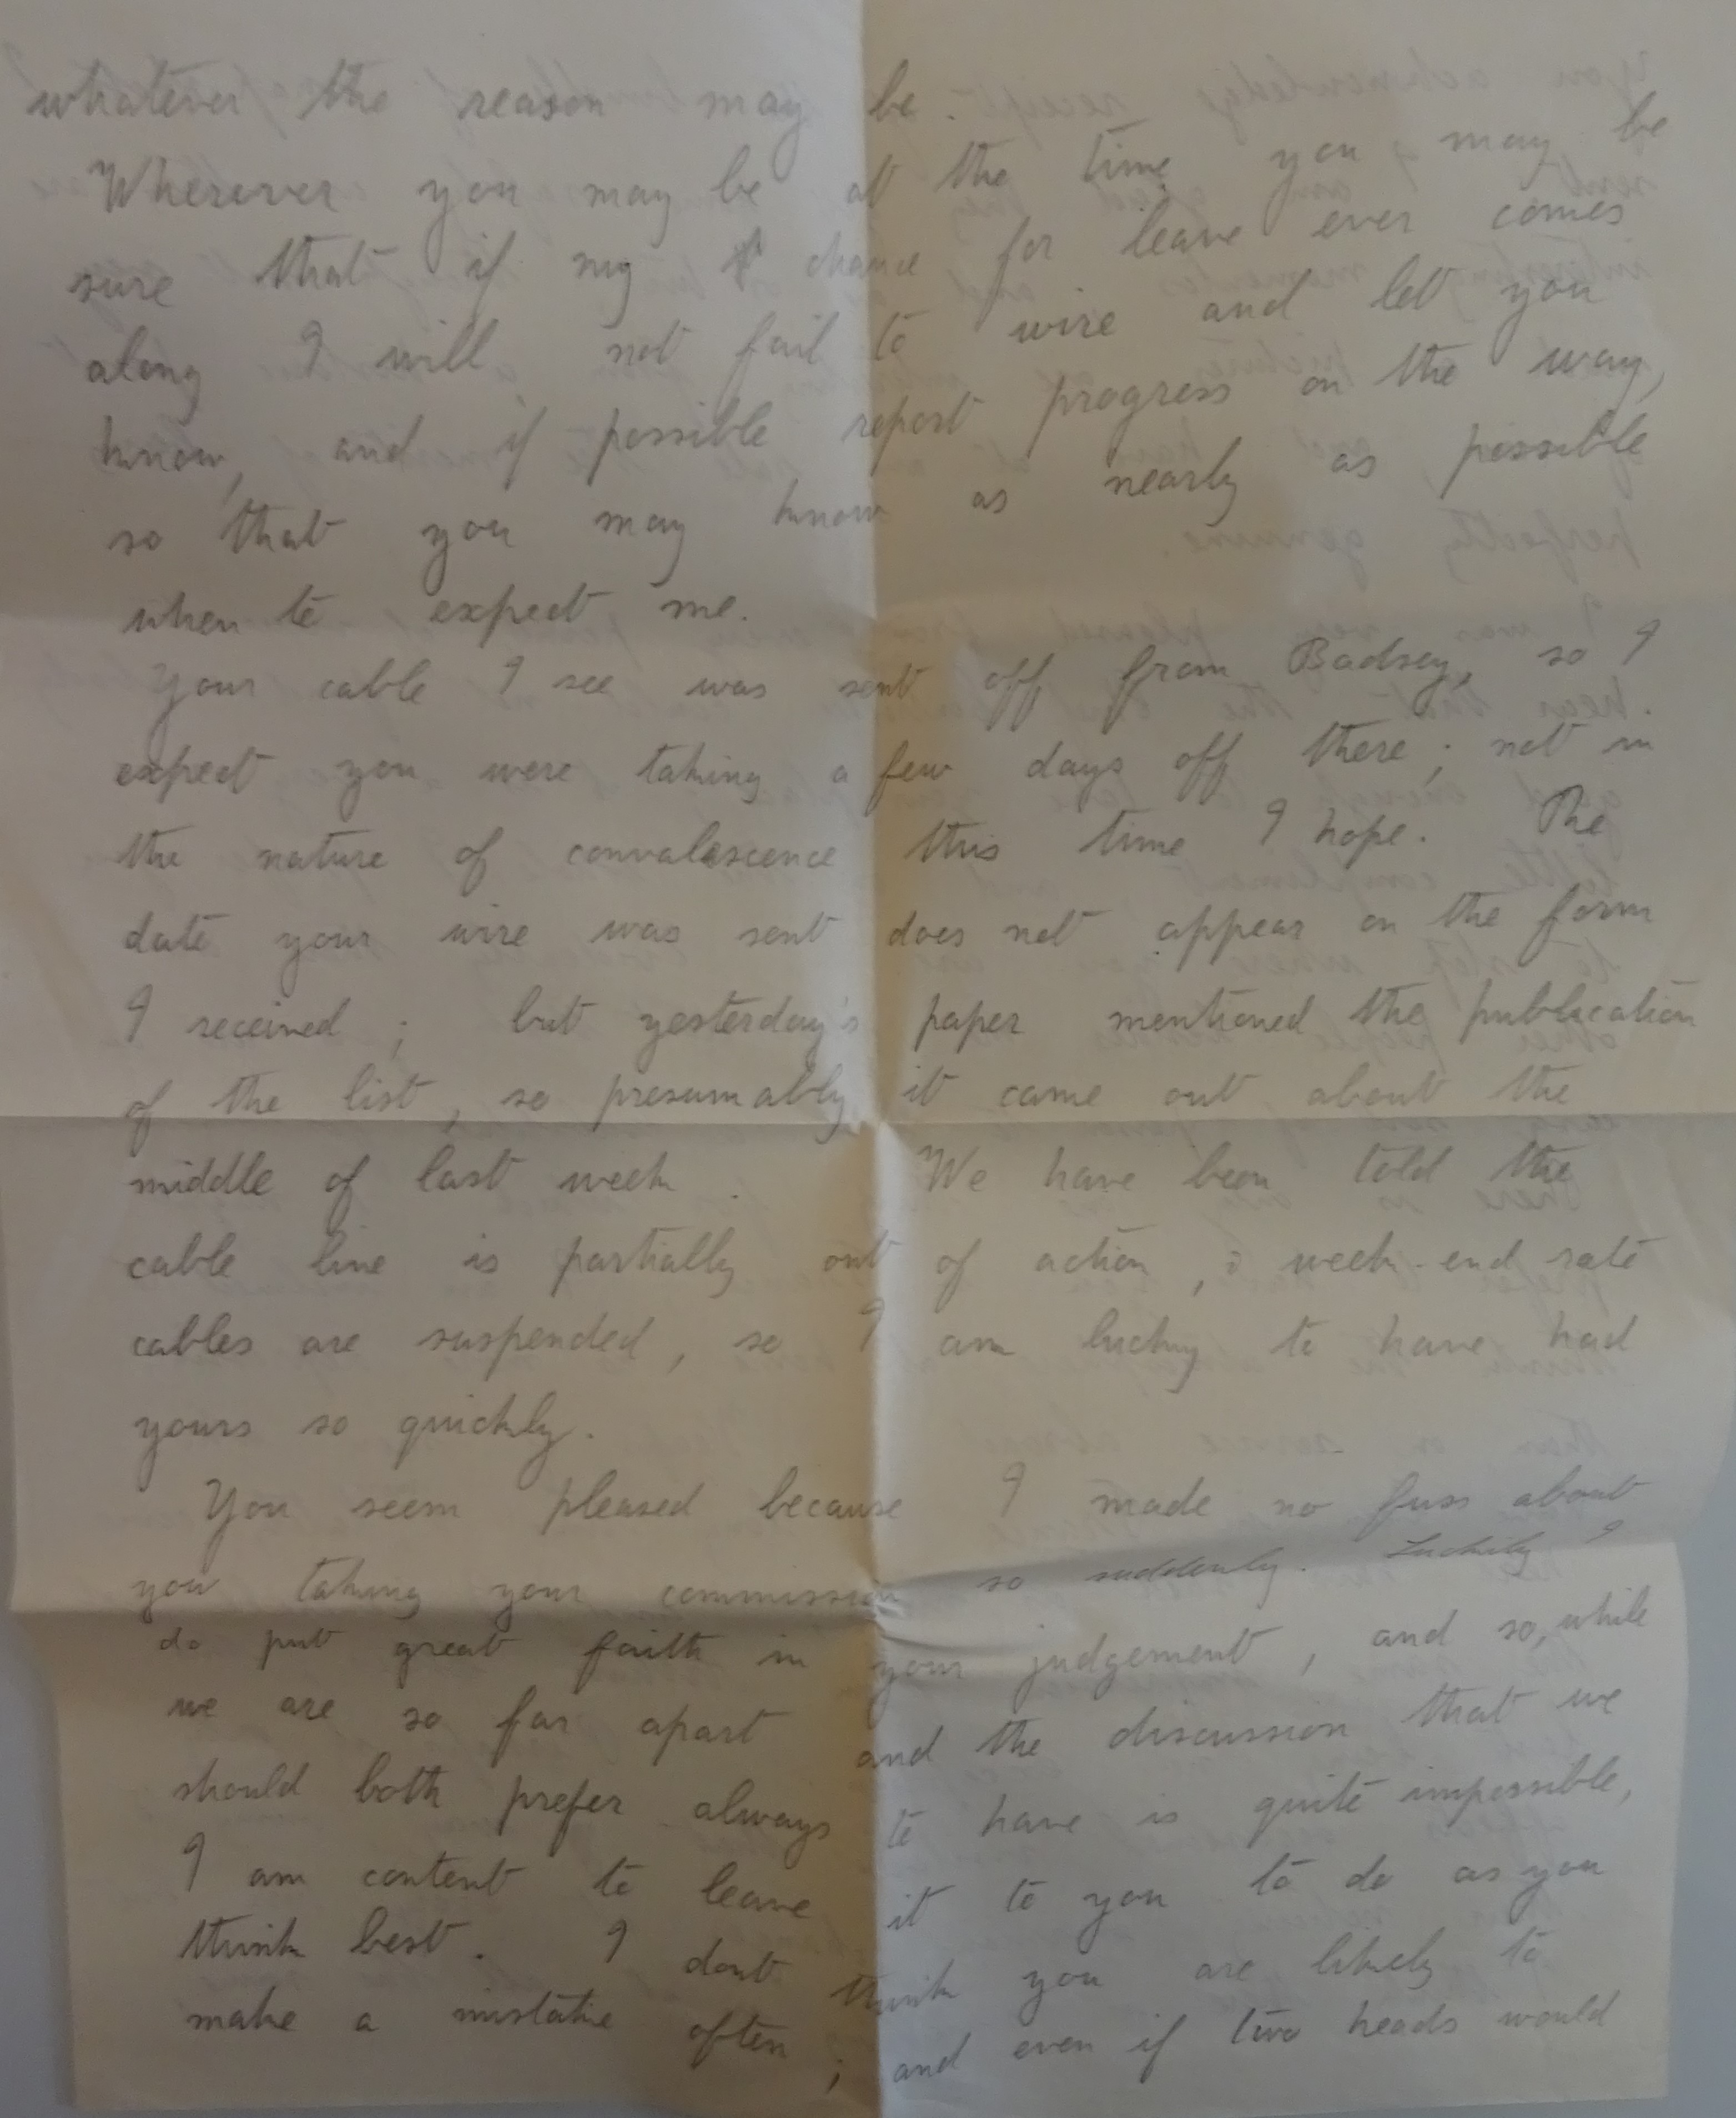 whatever the reason may be.
Wherever you may be at the time you may be
sure that if my chance for leave ever comes
along I will not fail to wire and let you
know, and if possible report progress on the way,
so that you may know as nearly as possible
when to expect me.
Your cable I see was sent off from Badsey, so I
expect you were taking a few days off there; not in
the nature of convalescence this time I hope. The
date your wire was sent does not appear on the form
I received; but yesterday's paper mentioned the publication
of the list, so presumably it came out about the
middle of last week. We have been told the
cable line is partially out of action, & week-end rate
cables are suspended, so I am lucky to have had
yours so quickly.
You seem pleased because I made no fuss about
you taking your commission so suddenly. Luckily I
do put great faith in your judgement, and so, while
we are so far apart and the discussion that we
should both prefer always to have is quite impossible,
I am content to leave it to you to do as you
think best. I dont think you are likely to
make a mistake often; and even if two heads would